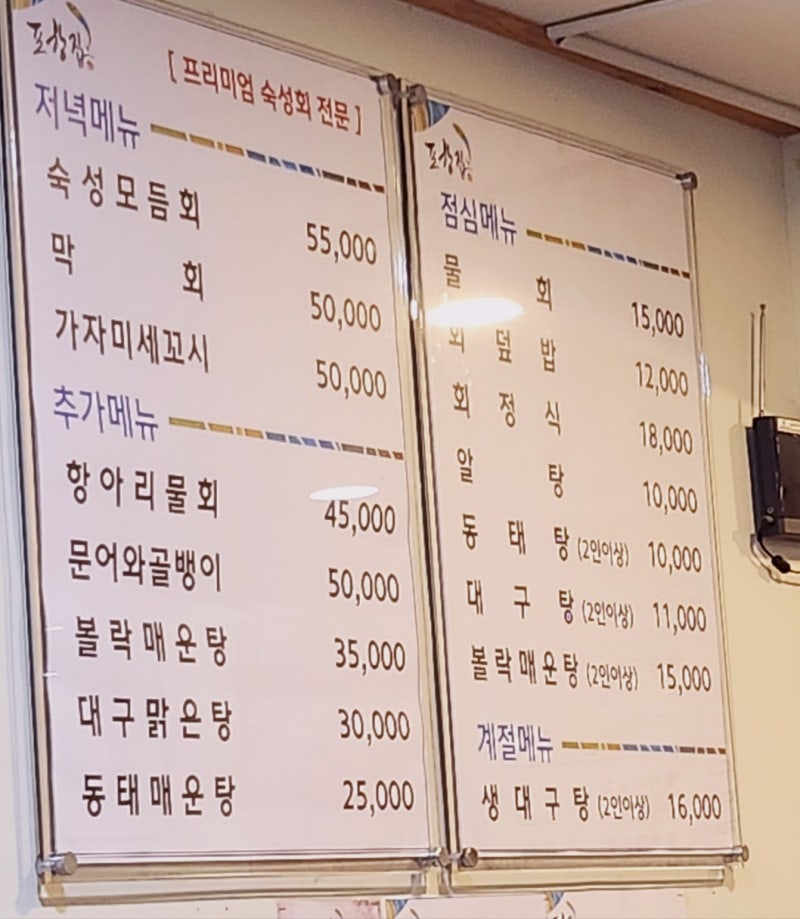 포항집
[ 프리미엄 숙성회 전문 ]
저녁메뉴
숙성모듬회 55,000
막 회 50,000
가자미세꼬시 50,000
추가메뉴
항아리물회 45,000
문어와골뱅이 50,000
볼락매운탕 35,000
대구맑은탕 30,000
동태매운탕 25,000
포항집
점심메뉴
물 회 15,000
회 덮 밥 12,000
회 정 식 18,000
알 탕 10,000
동 태 탕 (2인이상) 10,000
대 구 탕 (2인이상) 11,000
볼락매운탕 (2인이상) 15,000
계절메뉴
생 대 구 탕 (2인이상) 16,000